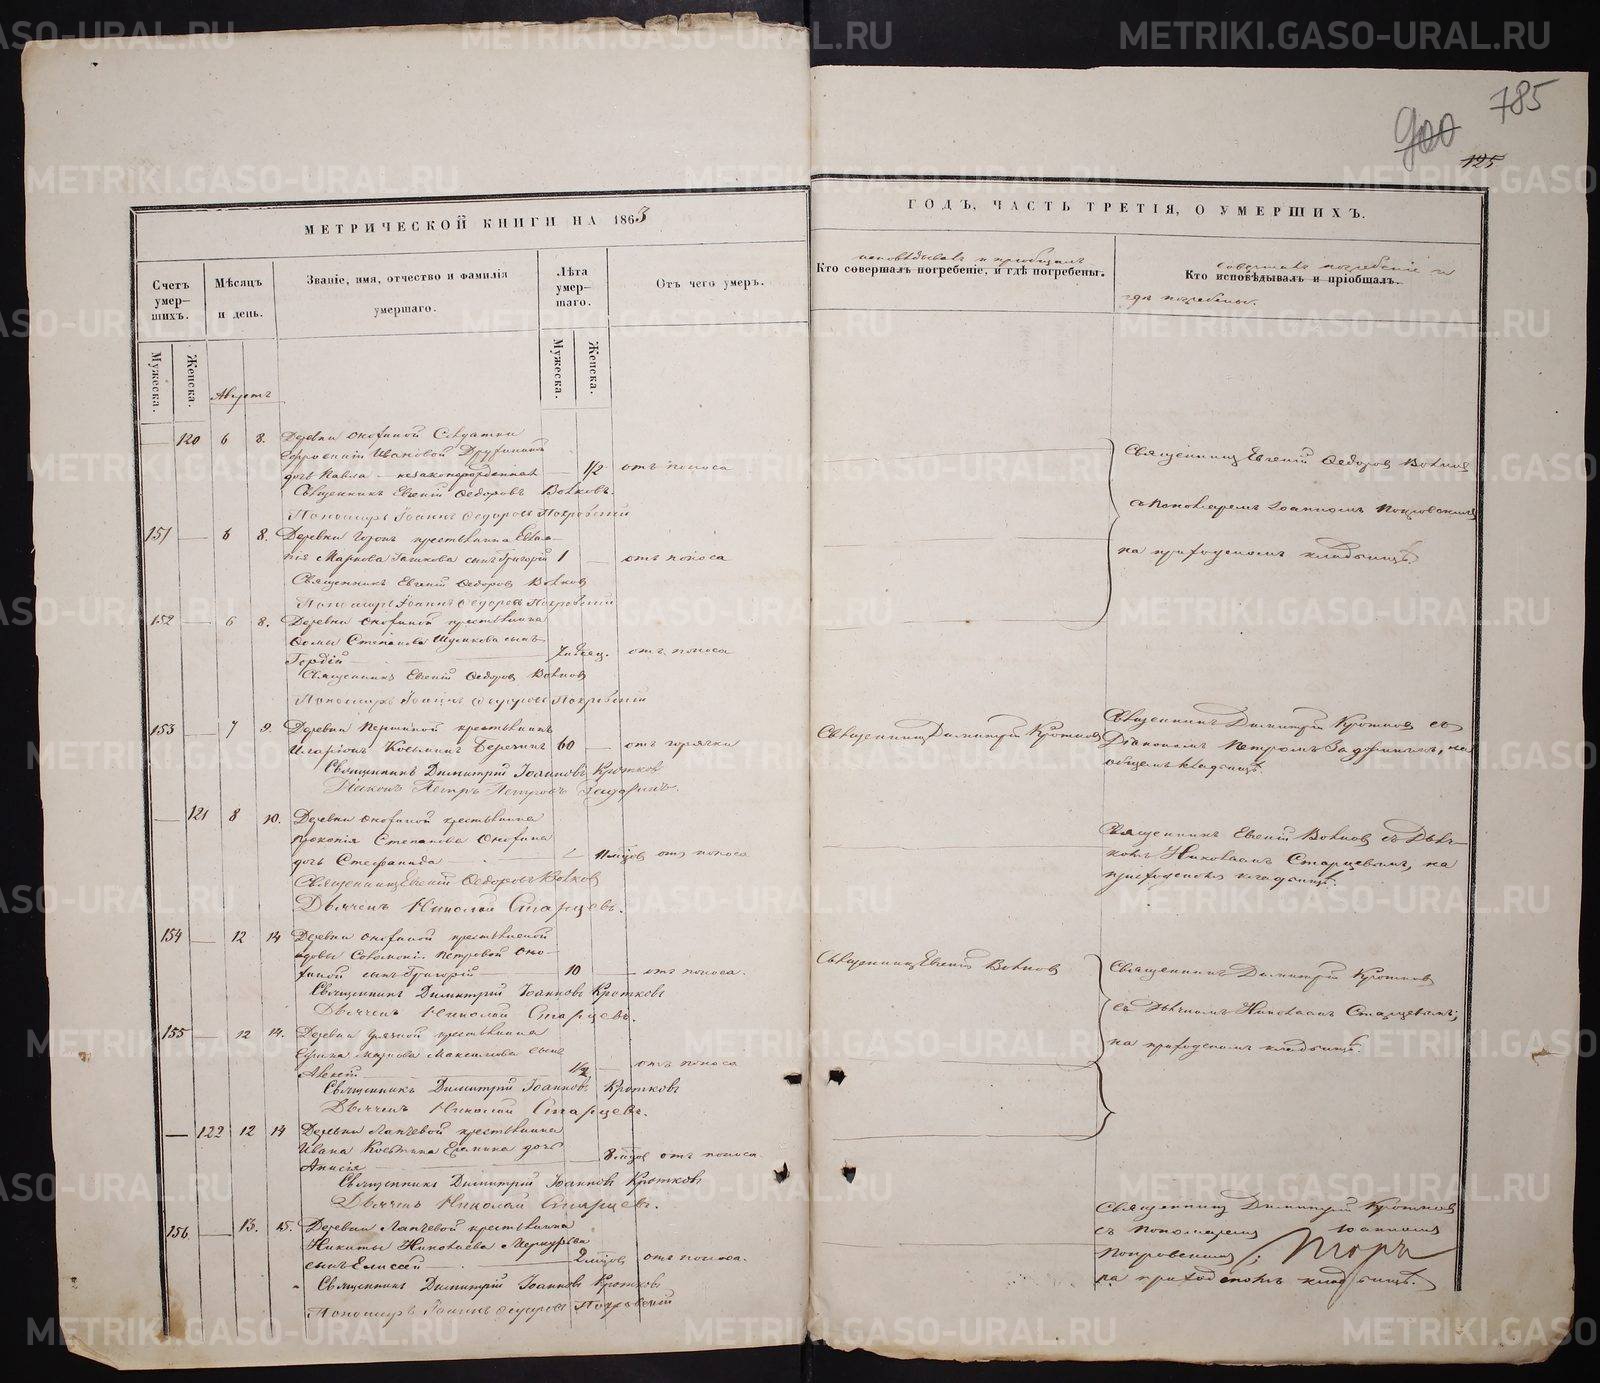 785
900
125
МЕТРИЧЕСКОЙ КНИГИ НА 1863
ГОДЪ, ЧАСТЬ ТРЕТІЯ, О УМЕРШИХЪ.
Счетъ умер-
шихъ.
Мѣсяцъ
и день.
Званіе, имя, отчество и фамилія
умершаго.
Лѣта
умер-
шаго.
Отъ чего умеръ.
исповѣдывалъ и пріобщалъ
Кто совершалъ погребеніе, и гдѣ погребены.
совершалъ погребеніе и
Кто исповѣдывалъ и пріобщалъ.
гдѣ погребены.
Мужеска.
Женска.
Мужеска.
Женска.
Августъ
120 6 8. Деревни Онохиной Солдатки
Ивановой Дружининой
дочь Павла — незаконнорожденная — 1/2 отъ поноса
Священникъ Евгеній Ѳедоровъ Волковъ.
Пономарь Іоаннъ Ѳедоровъ Покровскій
Священникъ Евгеній Ѳедоровъ Волковъ
съ Пономаремъ Іоанномъ Покровскимъ
на приходскомъ кладбищѣ.
151 — 6 8. Деревни крестьянина
Маркова сынъ Григорій 1 — отъ поноса
Священникъ Евгеній Ѳедоровъ Волковъ
Пономарь Іоаннъ Ѳедоровъ Покровскій
152 — 6 8. Деревни Онохиной крестьянина
Ѳомы Степанова сынъ
Гордій — 7 мѣсяц. отъ поноса
Священникъ Евгеній Ѳедоровъ Волковъ
Пономарь Іоаннъ Ѳедоровъ Покровскій
153 — 7 9. Деревни Першиной крестьянинъ
Иларіонъ Козьминъ Березинъ 60 — отъ горячки
Священникъ Димитрій Іоанновъ Кротковъ
Діаконъ Петръ Петровъ Задоринъ.
Священникъ Димитрій Кротковъ
Священникъ Димитрій Кротковъ съ
Діакономъ Петромъ Задоринымъ, на
общемъ кладбищѣ.
— 121 8 10. Деревни Онохиной крестьянина
Прокопія Степанова Онохина
дочь Стефанида — 11 мѣсцов отъ поноса
Священникъ Евгеній Ѳедоровъ Волковъ
Дьячекъ Николай Старцевъ.
Священникъ Евгеній Волковъ съ Дьяч-
комъ Николаемъ Старцевымъ, на
приходскомъ кладбищѣ.
154 — 12 14 Деревни Онохиной крестьянской
вдовы Соломоніи Петровой Оно-
хиной сынъ Григорій — 10 — отъ поноса.
Священникъ Димитрій Іоанновъ Кротковъ
Дьячекъ Николай Старцевъ.
Священникъ Евгеній Волковъ
Священникъ Димитрій Кротковъ
съ Дьячкомъ Николаемъ Старцевымъ;
на приходскомъ кладбищѣ.
155 — 12 14. Деревни крестьянина
Максимова сынъ
Алексій 1/2 — отъ поноса
Священникъ Димитрій Іоанновъ Кротковъ
Дьячекъ Николай Старцевъ.
— 122 12 14 Деревни Лапчевой крестьянина
Ивана Козьмина дочь
Анисія — 8 мѣсцов отъ поноса.
Священникъ Димитрій Іоанновъ Кротковъ
Дьячекъ Николай Старцевъ.
156 — 13. 15. Деревни Лапчевой крестьянина
Никиты Николаева Меркурьева
сынъ Елисей — 2 мѣсцов отъ поноса.
Священникъ Димитрій Іоанновъ Кротковъ
Пономарь Іоаннъ Ѳедоровъ Покровскій
Священникъ Димитрій Кротковъ
съ Пономаремъ Іоанномъ
Покровскимъ;
на приходскомъ кладбищѣ.
METRIKI.GASO-URAL.RU